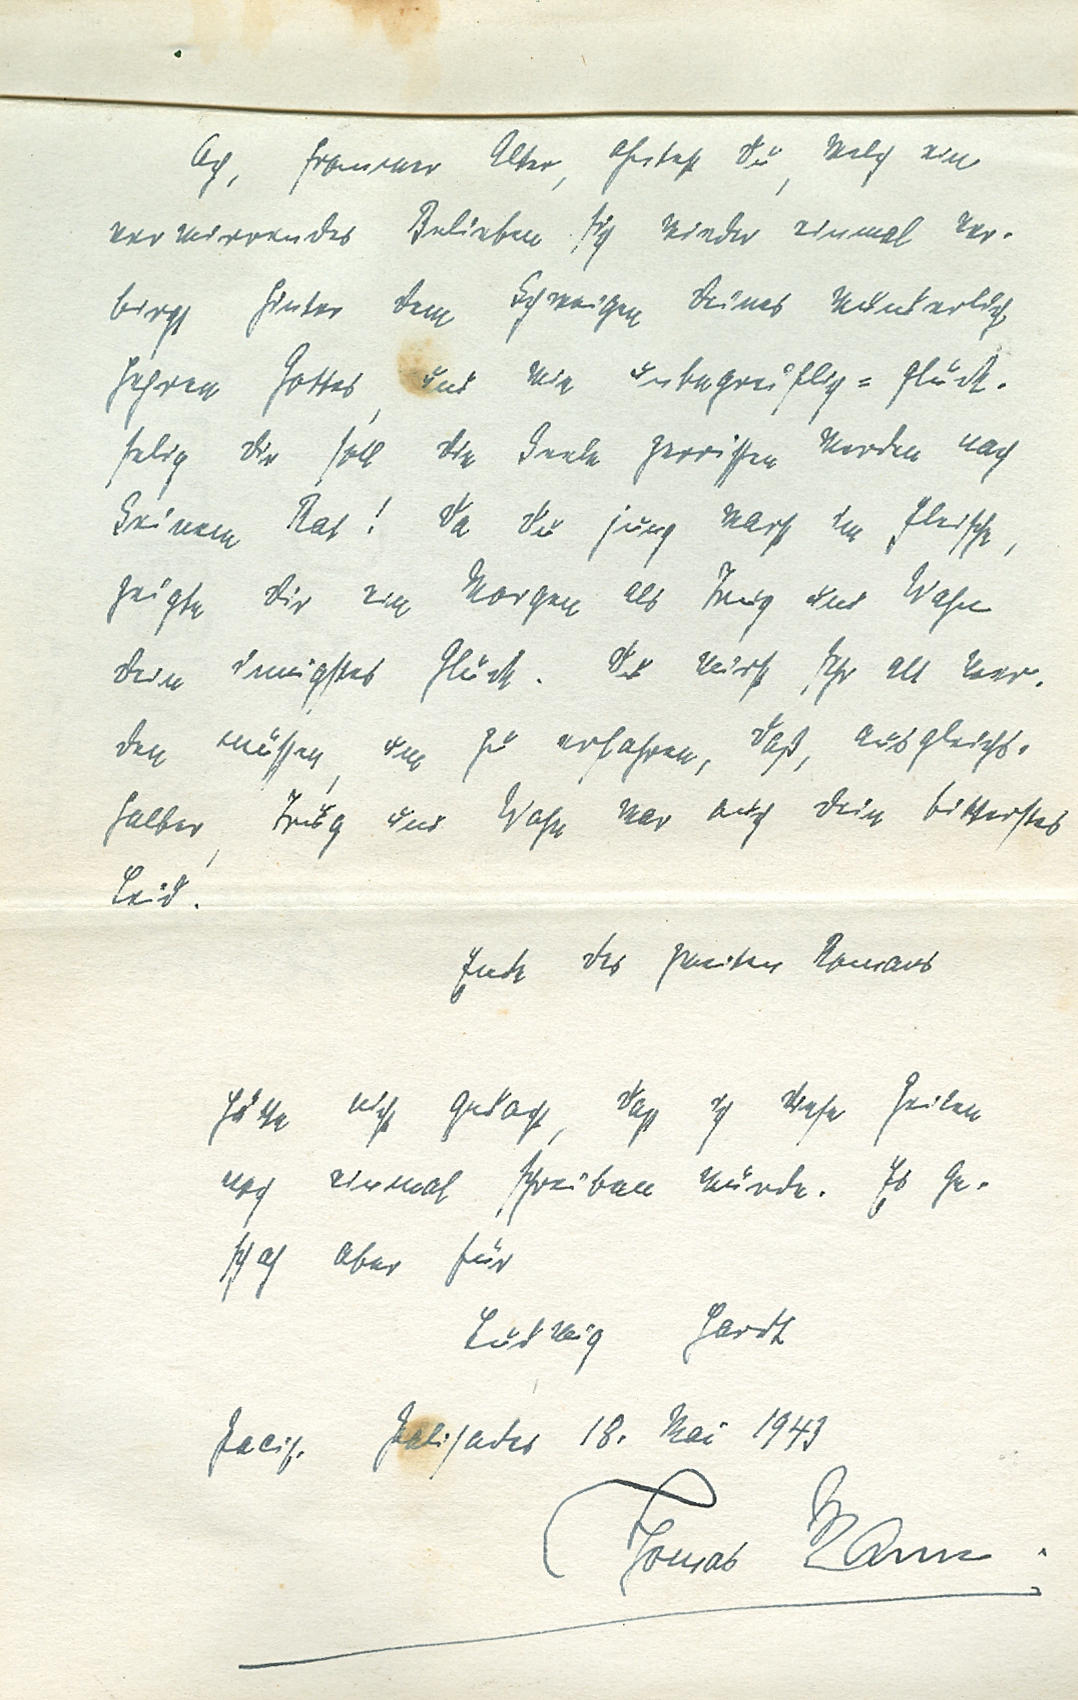 Ach, frommer Alter, ahntest du, welch ein
verwirrendes Belieben sich wieder einmal ver-
birgt hinter dem Schweigen deines wunderlich
hehren Gottes, und wie unbegreiflich-glück-
selig dir soll die Seele zerrissen werden nach
Seinem Rat! Da du jung warst im Fleische,
zeigte dir ein Morgen als Trug und Wahn
dein innigstes Glück. Du wirst sehr alt wer-
den müssen, um zu erfahren, daß, ausgleichs-
halber, Trug und Wahn war auch dein bitterstes
Leid.
Ende des zweiten Romans
Hätte nicht gedacht, daß ich diese Zeilen
noch einmal schreiben würde. Es ge-
schah aber für
Ludwig Hardt
Pacif. Palisades 18. Mai 1943
Thomas Mann.